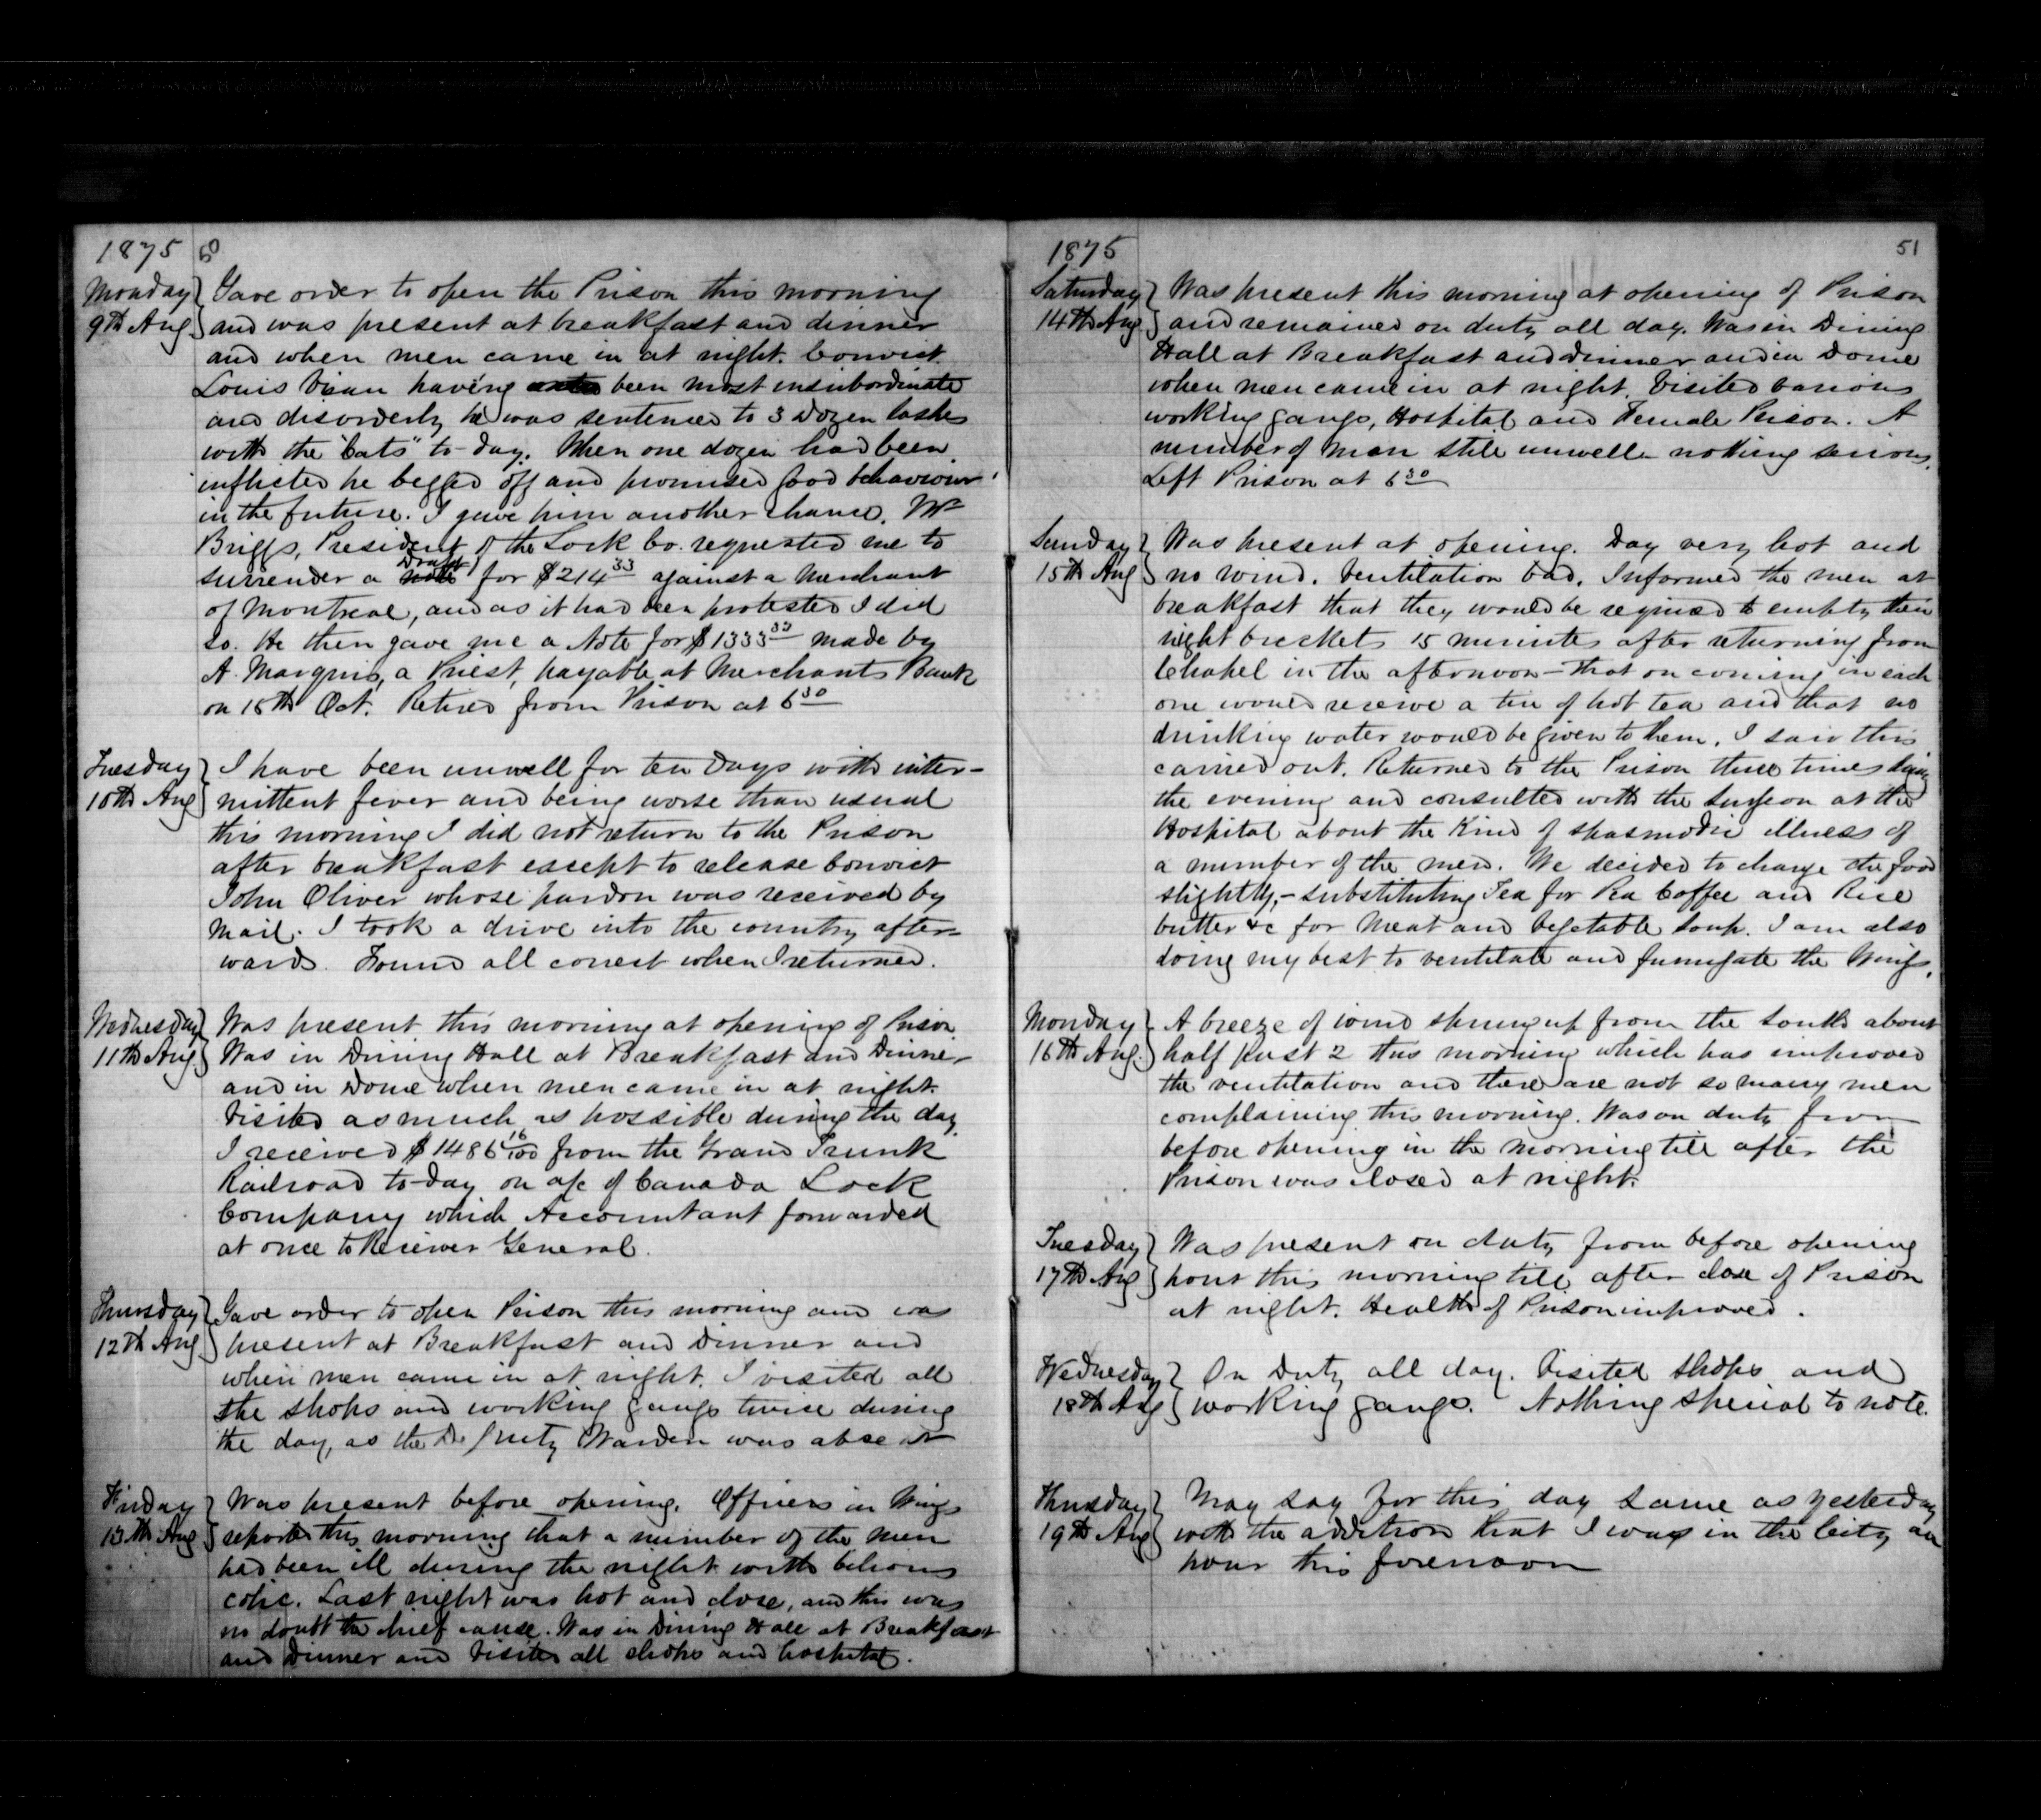 1875 50
Monday 9th Aug.
Gave order to open the Prison this morning
and was present at breakfast and dinner
and when men came in at night. Convict
Louis having been most insubordinate
and disorderly he was sentenced to 3 dozen lashes
with the "Cats" to-day. When one dozen had been
inflicted he begged off and promised good behaviour
in the future. I gave him another chance. Mr
Briggs, President of the Lock Co. requested me to
surrender a Draft for $214 33 against a Merchant
of Montreal, and as it had been protested I did
so. He then gave me a Note for $1333 33 made by
A. Marquis, a Priest, payable at Merchants Bank
on 18th Oct. Retired from Prison at 6 30
Tuesday 10th Aug
I have been unwell for ten days with inter-
mittent fever and being worse than usual
this morning I did not return to the Prison
after breakfast except to release Convict
John Oliver whose pardon was received by
Mail. I took a drive into the country after-
wards. Found all correct when I returned.
Wednesday 11th Aug.
Was present this morning at opening of Prison.
Was in Dining Hall at Breakfast and Dinner
and in Dome when men came in at night.
Visited as much as possible during the day.
I received $1486 16/100 from the Grand Trunk
Railroad to-day on a/c of Canada Lock
Company which Accountant forwarded
at once to Receiver General.
Thursday 12th Aug.
Gave order to open Prison this morning and was
present at Breakfast and Dinner and
when men came in at night. I visited all
the shops and working gangs twice during
the day, as the Deputy Warden was absent
Friday 13th Aug
Was present before opening. Officers in Wings
reported this morning that a number of the men
had been ill during the night with bilious
colic. Last night was hot and close, and this was
no doubt the chief cause. Was in Dining Hall at Breakfast
and Dinner and visited all shops and hospital.
1875 51
Saturday 14th Aug
Was present this morning at opening of Prison
and remained on duty all day. Was in Dining
Hall at Breakfast and Dinner and in Dome
when men came in at night. Visited various
working gangs, Hospital and Female Prison. A
number of men still unwell nothing serious.
Left Prison at 6 30
Sunday 15th Aug
Was present at opening. Day very hot and
no wind. Ventilation bad. Informed the men at
breakfast that they would be required to empty their
night buckets 15 minutes after returning from
Chapel in the afternoon – that on coming in each
one would receive a tin of hot tea and that no
drinking water would be given to them. I saw this
carried out. Returned to the Prison three times during
the evening and consulted with the Surgeon at the
Hospital about the kind of spasmodic illness of
a number of the men. We decided to change the food
slightly, – substituting Tea for Pea Coffee and Rice
butter &c for Meat and Vegetable Soup. I am also
doing my best to ventilate and fumigate the Wings.
Monday 16th Aug.
A breeze of wind sprung up from the South about
half past 2 this morning which has improved
the ventilation and there are not so many men
complaining this morning. Was on duty from
before opening in the morning till after the
Prison was closed at night.
Tuesday 17th Aug
Was present on duty from before opening
hour this morning till after close of Prison
at night. Health of Prison improved.
Wednesday 18th Aug
On Duty all day. Visited shops and
working gangs. Nothing special to note.
Thursday 19th Aug
May say for this day same as yesterday
with the addition that I was in the City an
hour this forenoon